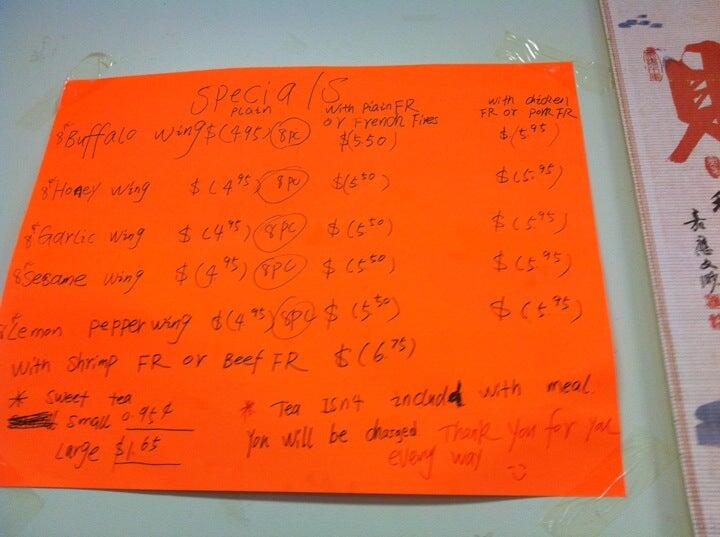 Specials
Plain
with Plain FR or French Fires
with chicken FR or Pork FR
Buffalo wing $(4.95) 8pc $(5.50) $(5.95)
Honey wing $(4.95) 8pc $(5.50) $(5.95)
Garlic wing $(4.95) 8pc $(5.50) $(5.95)
Sesame wing $(4.95) 8pc $(5.50) $(5.95)
Lemon pepper wing $(4.95) 8pc $(5.50) $(5.95)
with Shrimp FR or Beef FR $(6.75)
* Sweet tea
Small 0.95¢
Large $1.65
* Tea Isn't includ with meal.
You will be charged Thank you for you
every way